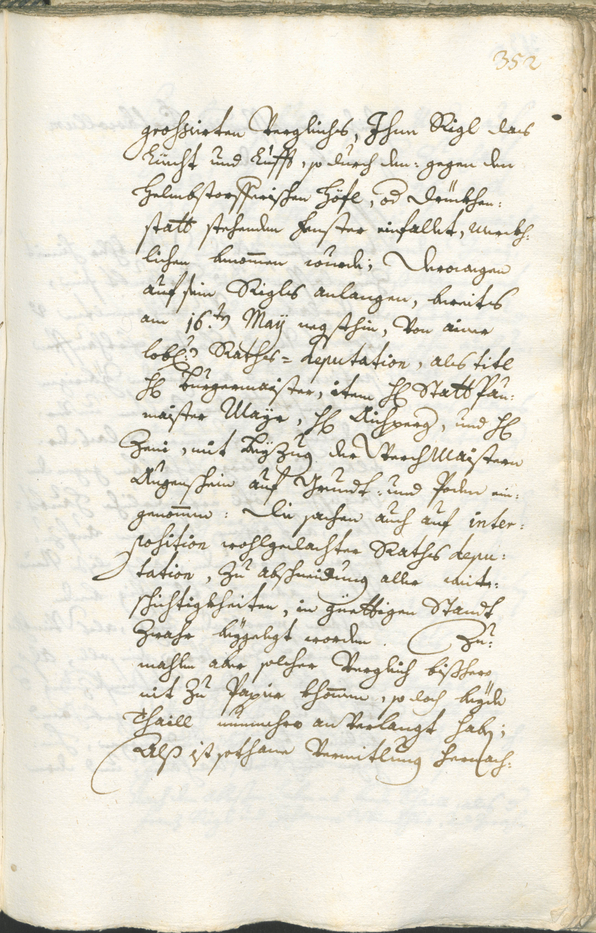 352
grossirten Vergliches, Ihme Rigl das
Liecht und Lufft, so durch den: gegen den
Helmbstorfferischen Höfl, od
statt stehenden Fenster einfallet, merckh:
lichen benommen wurde; Derowegen
auf sein Rigls anlangen, bereits
am 16.ten May negsthin, Von ainer
lobl: Raths= deputation, als titl
H: Burgermaister, item H: Statt Pau:
maister Mayr, H: Aichperg, und H:
Zeni, mit beyzug der Werchmaistern
Augenschein auf Grundt: und Poden ein:
genommen: Die sachen auch auf inter:
position wohlgedachter Raths depu:
tation, zu abschneidung aller
schichtigkheiten, in güettigen Standt
Zwahr beygelegt worden. Zu:
mahlen aber solcher Verglich bisshero
nit zu Papier khommen, so doch beyde
Thaill nunmehro an Verlangt hab;
Alss ist sothane Vermitlung hernach: